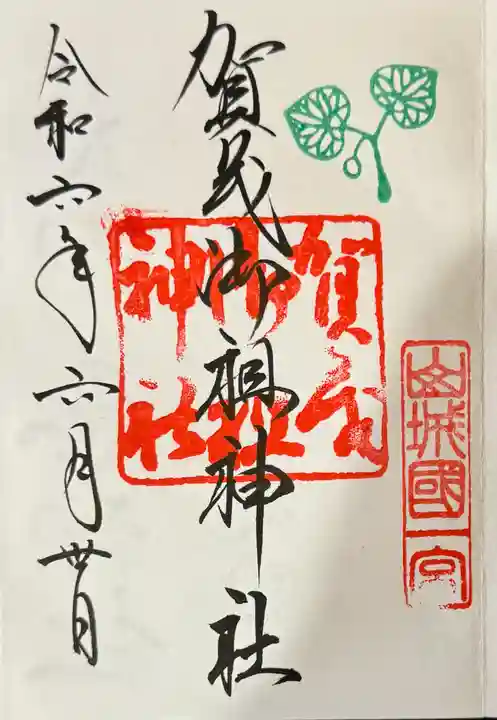 山城國一宮
賀茂御祖神社
賀茂御祖神社
令和六年六月卅日